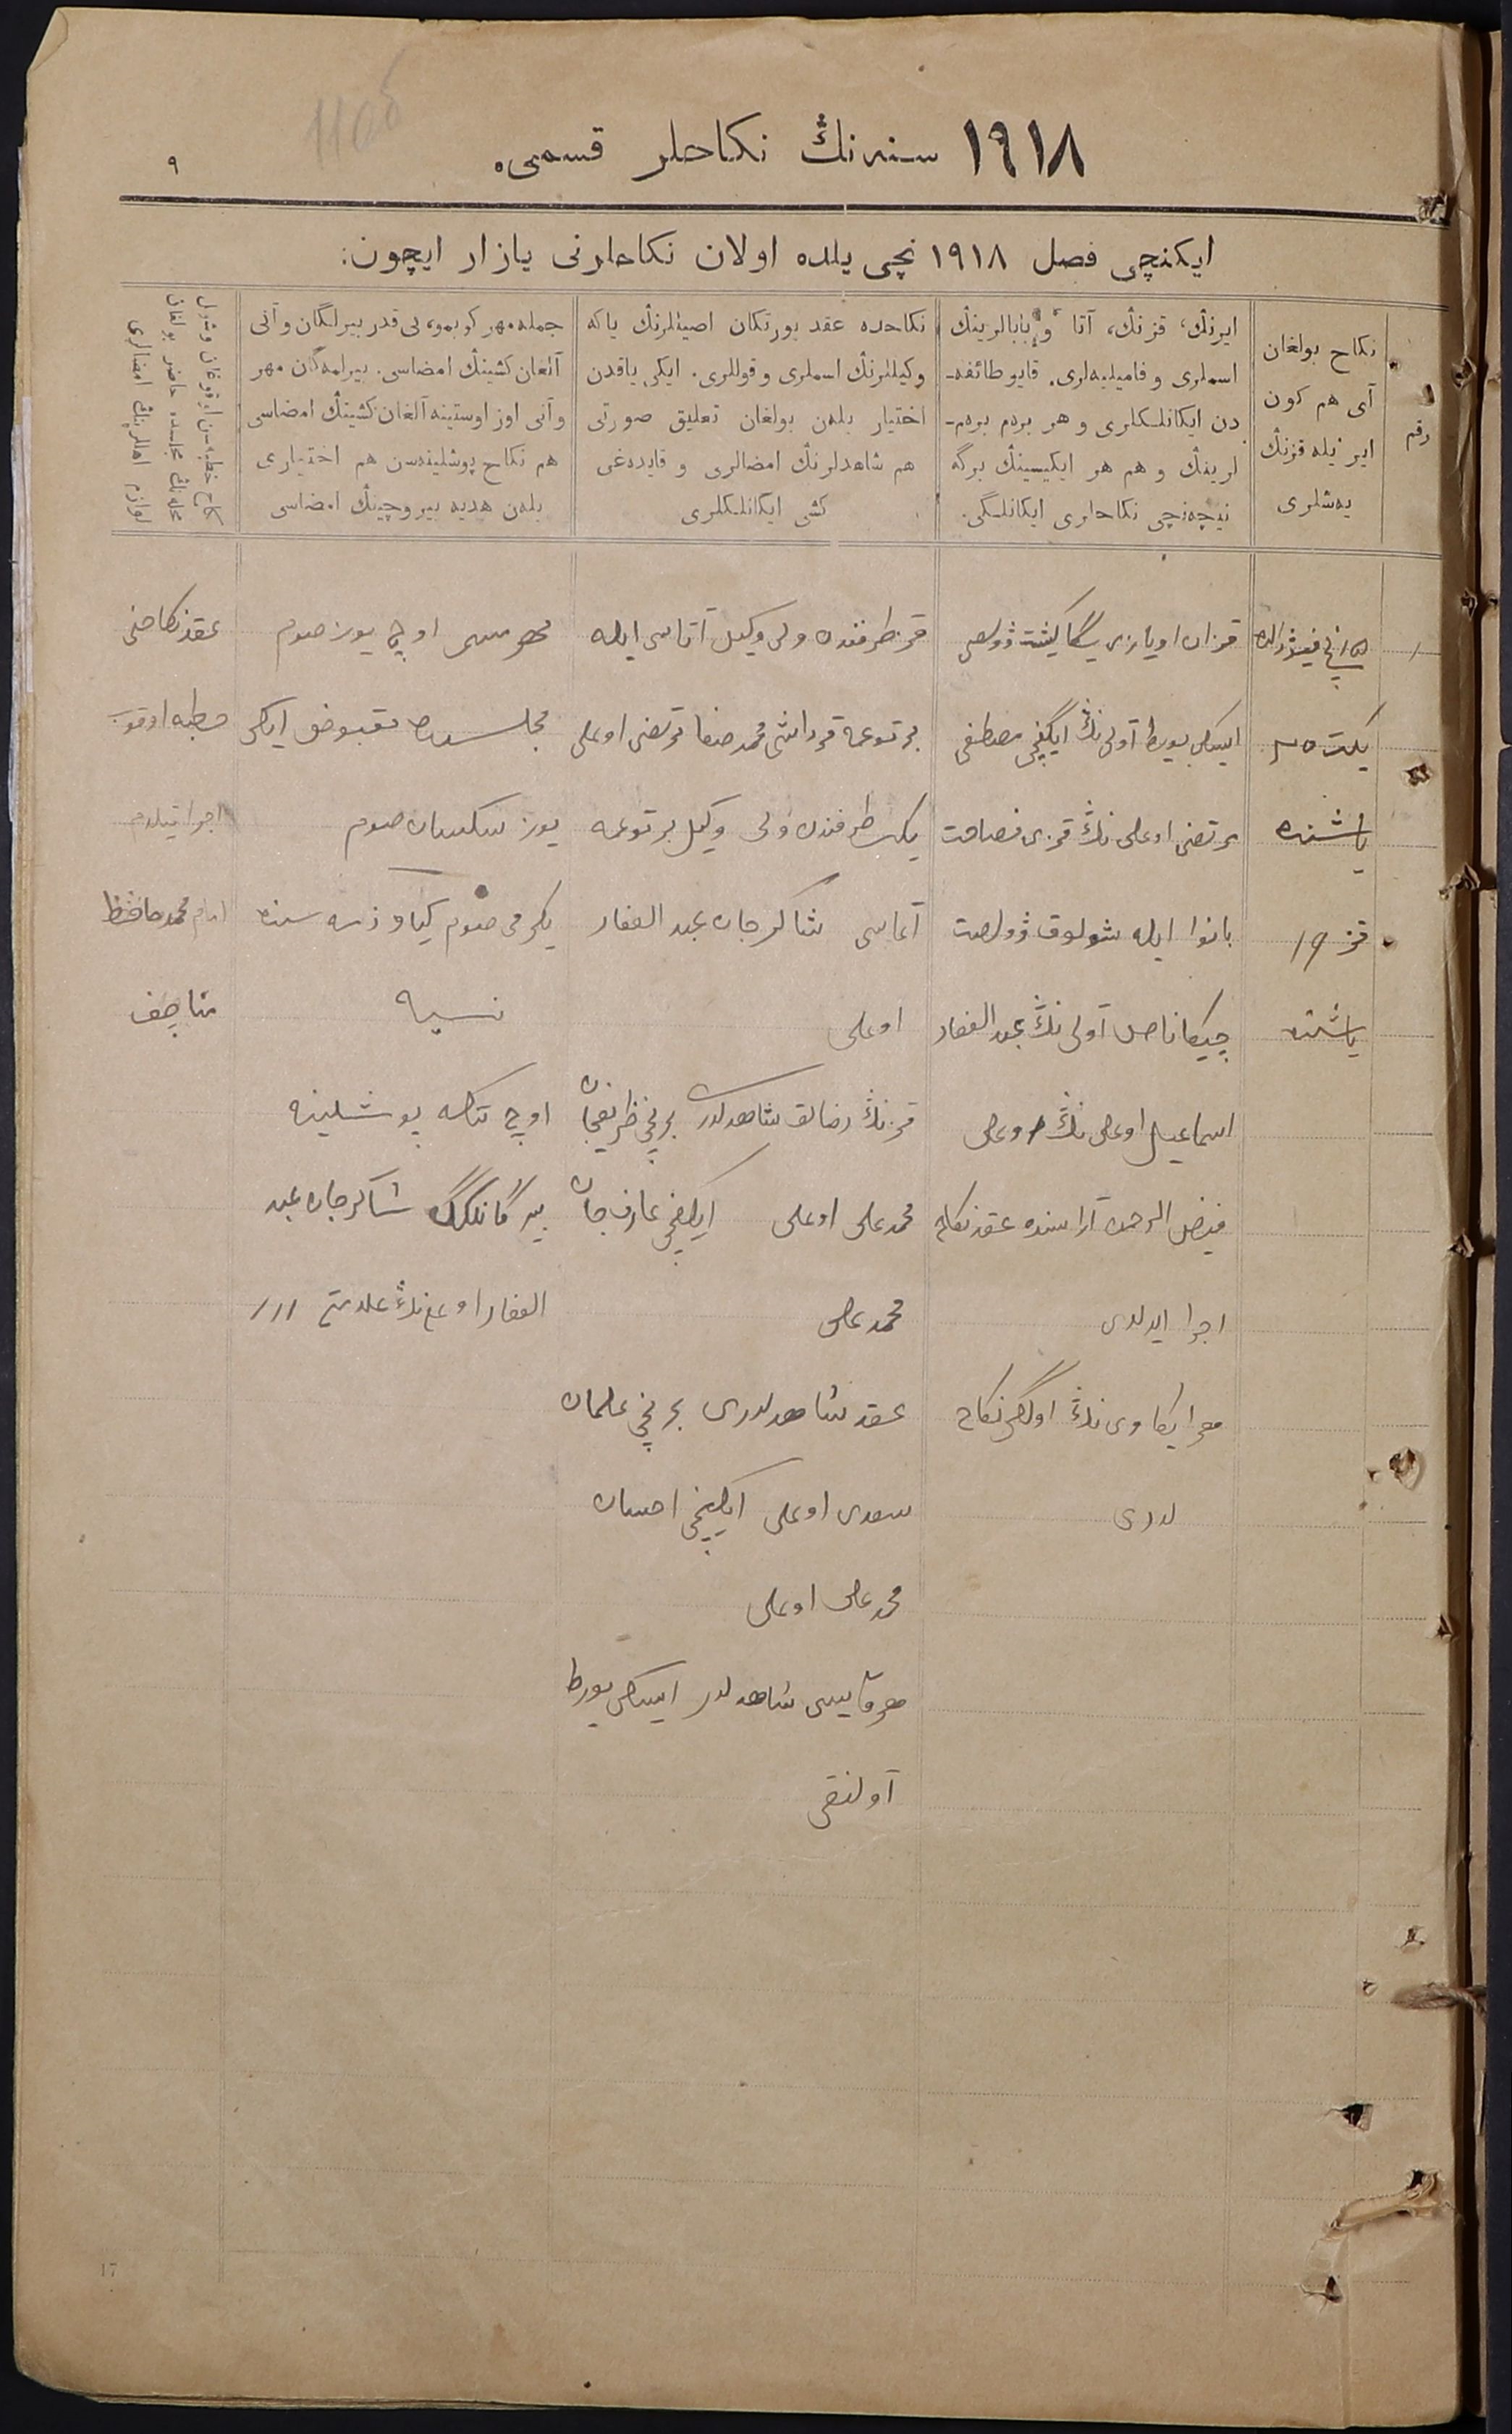 110б
١٩١٨ سنه‌نڭ نكاحلر قسمی.
٩
ایكنچی فصل ١٩١٨ نچی یلده اولان نكاحلرنی یازار ایچون:
رقم
نكاح بولغان
آی هم كون
ایر ئیله قزنڭ
یه‌شلری
ایرنڭ، قزنڭ، آتا و بابالرینڭ
اسملری و فامیلیه‌لری. قایو طائفه‌-
دن ایكانلـكلری و هر بردم بردم-
لرینڭ و هم هر ایكیسینڭ برگه
نیچه‌نچی نكاحلری ایكانلـگی.
نكاحده عقد یورتكان اصیللرنڭ یا كه
وكیللرنڭ اسملری و قوللری. ایكی یاقدن
اختیار بلەن بولغان تعلیق صورتی
هم شاهدلرنڭ امضالری و قایده‌غی
كشی ایكانلـكلری
جمله مهر كوبمو، نی قدر بیرلگان و آنی
آلغان كشینڭ امضاسی. بیرلمه‌گان مهر
و آنی اوز اوستینه آلغان كشینڭ امضاسی
هم نكاح پوشلینه‌سن هم اختیاری
بلەن هدیه بیروچینڭ امضاسی
نكاح خطبه‌سن اوقوغان وشول
محله‌نڭ مجلسده حاضر بولغان
لوازم اهللرینڭ امضالری
١
یكت ٢٥
یاشنده
قز ١٩
یاشنده
قزان اویازی
ایسكی یورط آولی نڭ ایكنچی مصطفی
مرتضی اوغلی نڭ قزی فصاحت
بانوا ایله شولوق ڤولصت
آولی نڭ عبد الغفار
اسماعیل اوغلی نڭ اوغلی
فیض الرحمن آراسنده عقد نكاح
اجرا ایدلدی
هر ایكاوی نڭ اولگی نكاح
لاری
قز طرفندن ولی وكیل آتاسی ایله
بر توغمه قرداشی محمد صفا مرتضی اوغلی
یكت طرفندن ولی وكیل بر توغمه
آغاسی شاكرجان عبد الغفار
اوغلی
قزنڭ رضالق شاهدلری برنچی ظریفجان
محمد علی اوغلی ایكنچی عارف جان
محمد علی
عقد شاهدلری برنچی علمان
سعدی اوغلی ایكنچی احسان
محمد علی اوغلی
هر قایسی شاهدلر ایسكی یورط
آولنقی
مهر مسمی اوچ یوز صوم
مجلسده مقبوض ایكی
یوز سكسان صوم
یكرمی صوم كیاو ذمه سنده
نسیه
اوچ تنكه پوشلینه
بیرگانلك شاكرجان عبد
الغفار اوغلی نڭ علامتی ١١١
عقد نكاحنی
خطبه اوقوب
اجرا قیلدم
امام محمد حافظ
17